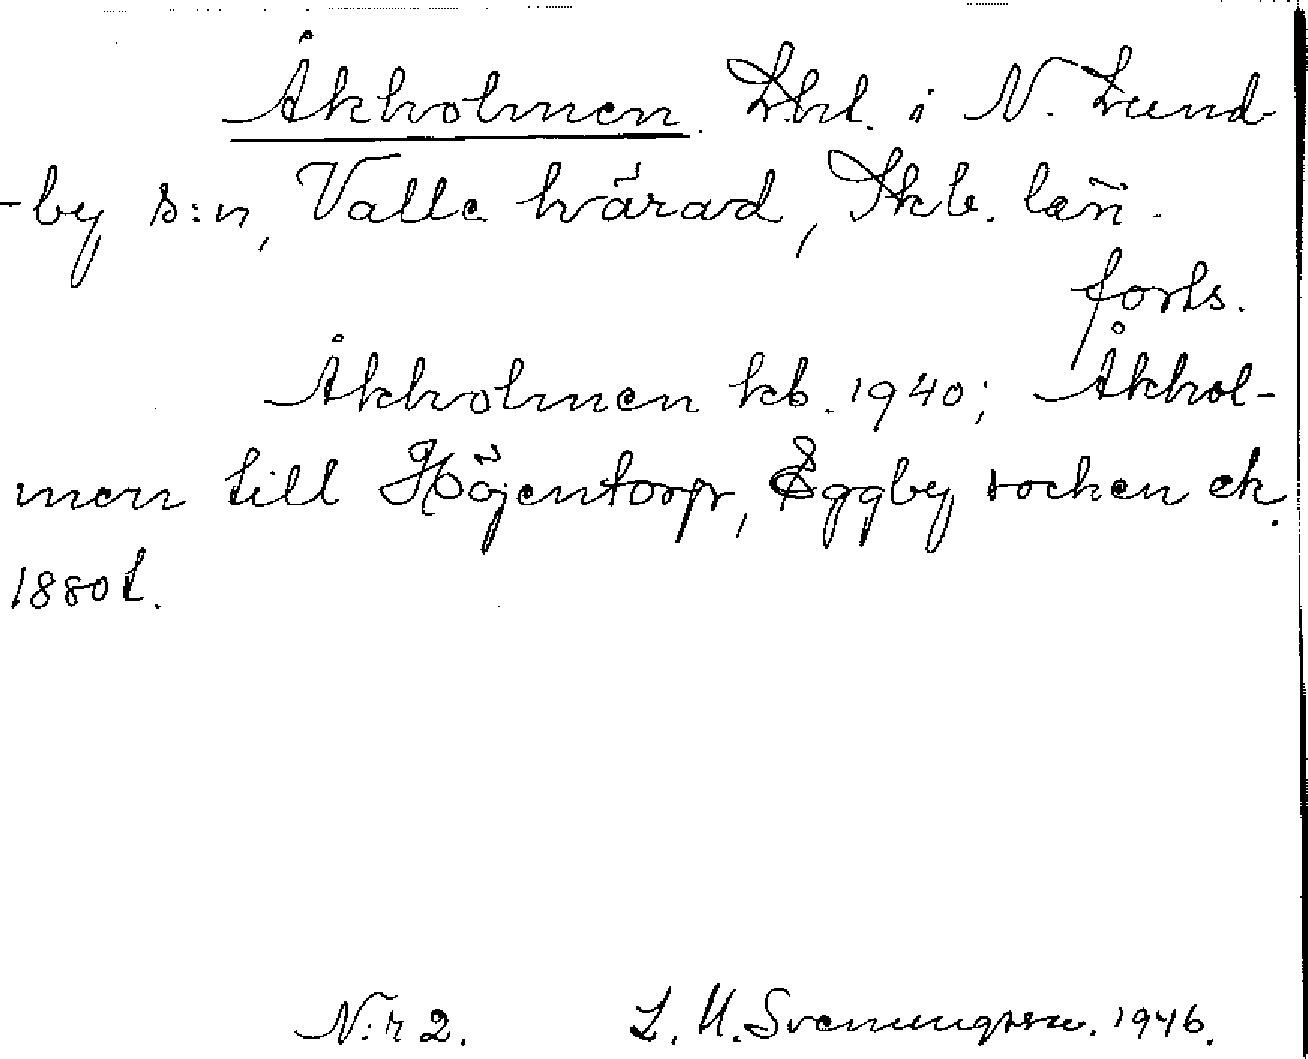 Åkholmen. Lht. i N. Lund
-by s:n, Valle härad, Skb. län.
forts.
Åkholmen kb. 1940; Åkhol-
men till Höjentorp, Eggby socken ek.
1880t.
N:r 2. L. M. Svenungsson. 1946.